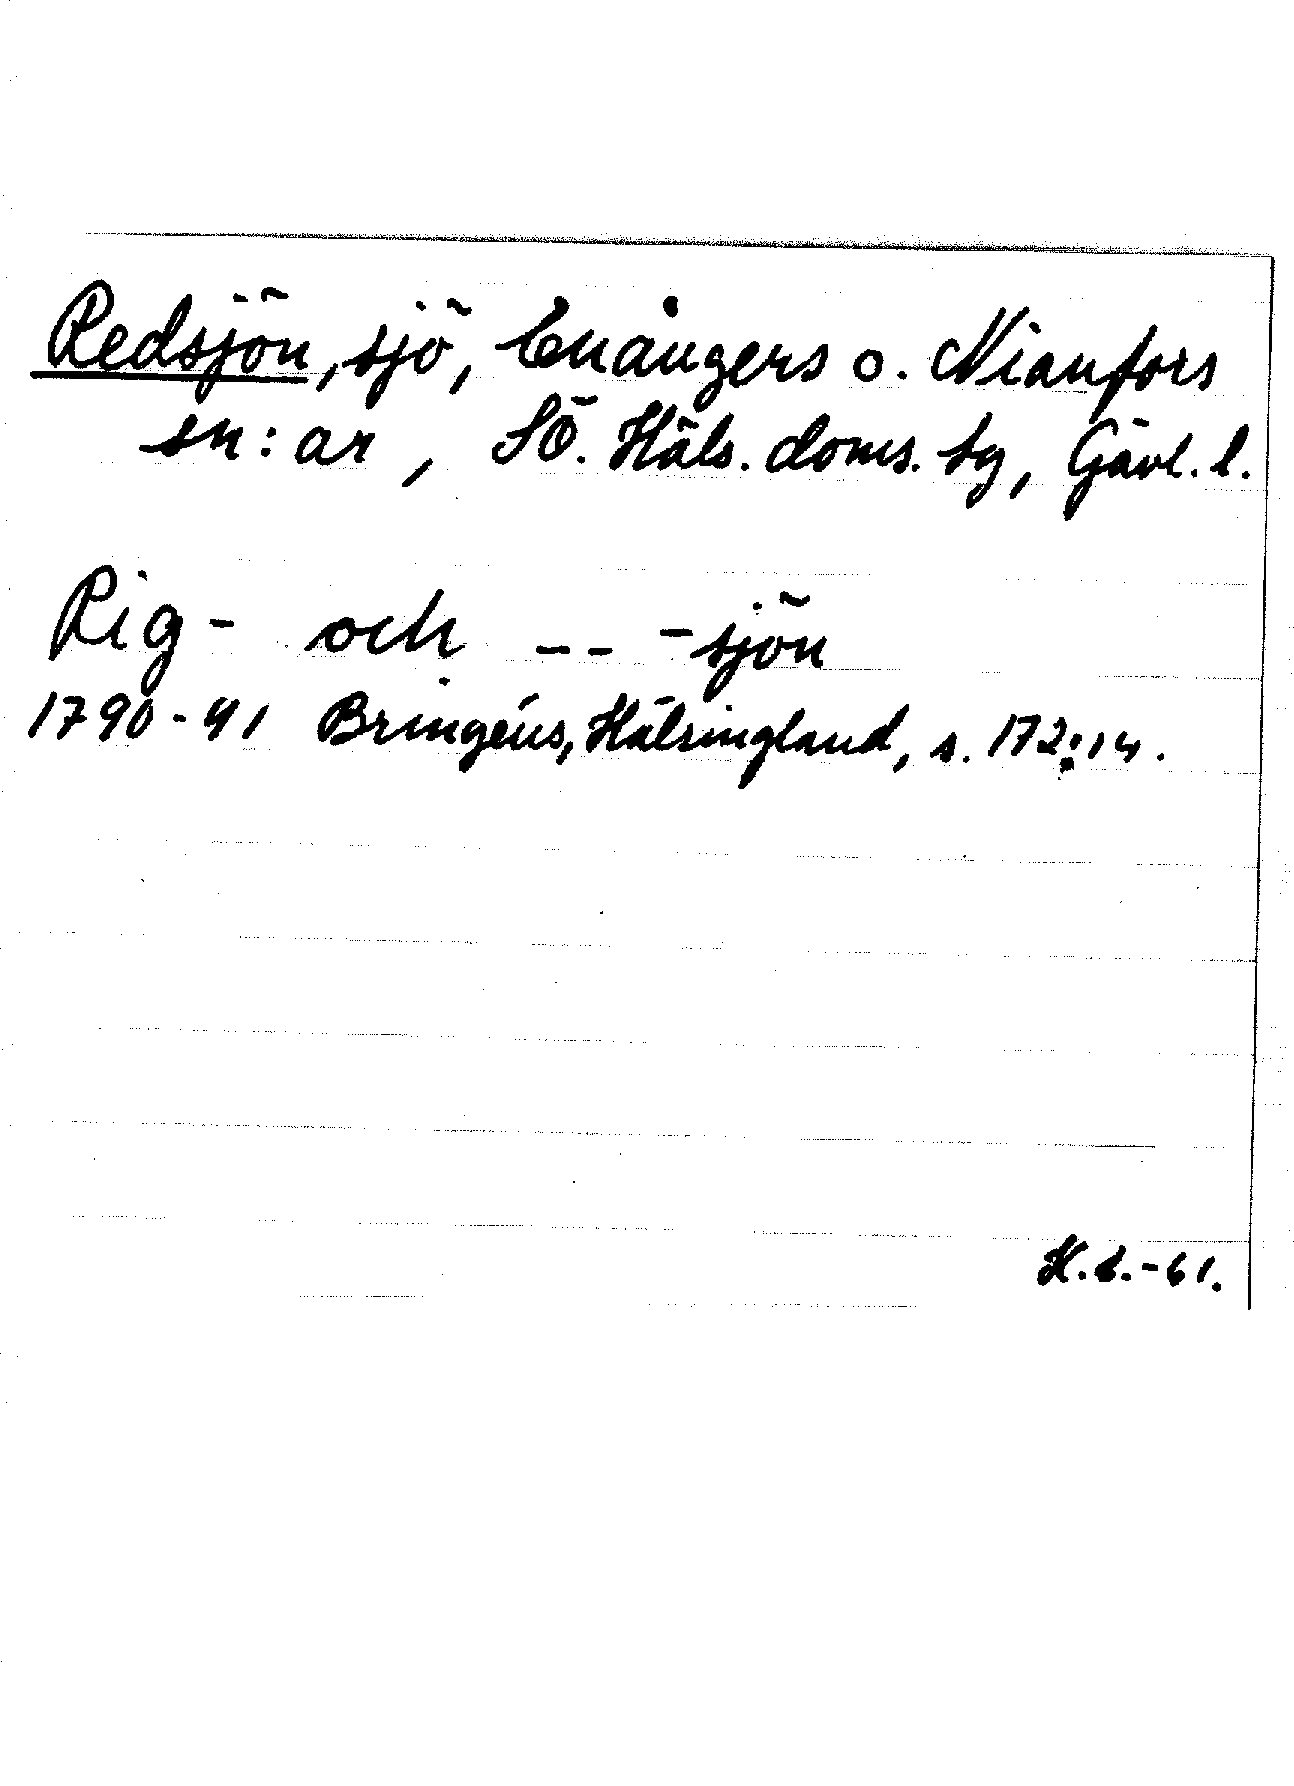 Redsjön, sjö, Enångers o. Nianfors
sn:ar, SÖ. Häls. doms. sg, Gävl. l.
Rig- och -- -sjön
1790-91 Bringéus, Hälsingland, s. 172:14.
H.S.-61.